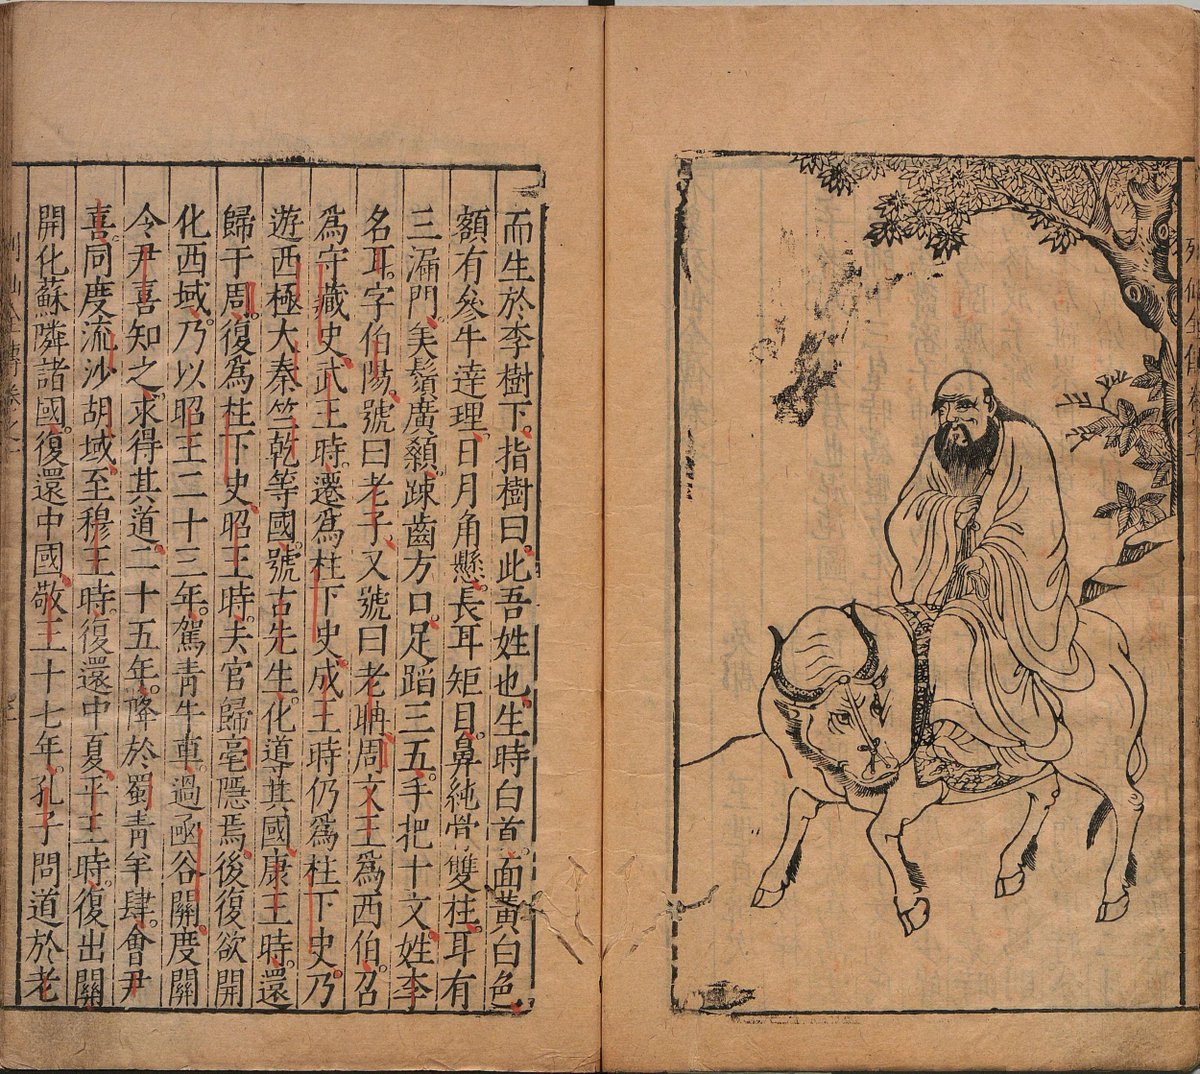 而生於李樹下。指樹曰。此吾姓也。生時白首。面黃白色。
額有參牛達理。日月角懸。長耳矩目。鼻純骨雙柱。耳有
三漏門。美鬚廣顙。疎齒方口。足蹈三五。手把十文。姓李
名耳。字伯陽。號曰老子。又號曰老聃。周文王爲西伯。召
爲守藏史。武王時。遷爲柱下史。成王時仍爲柱下史。乃
遊西極大秦竺乾等國。號古先生。化導其國。康王時。還
歸于周。復爲柱下史。昭王時。去官歸亳隱焉。後復欲開
化西域。乃以昭王二十三年。駕青牛車。過函谷關。度關
令尹喜知之。求得其道。二十五年。降於蜀青羊肆。會尹
喜。同度流沙胡域。至穆王時。復還中夏。平王時。復出關
開化蘇隣諸國。復還中國。敬王十七年。孔子問道於老
列仙全傳卷之一